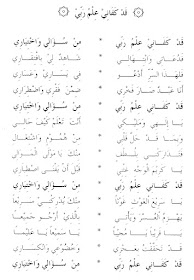 قَدْ كَفَانِي عِلْمُ رَبِّي
قَدْ كَفَانِي عِلْمُ رَبِّي * مِنْ سُؤَالِي وَاخْتِيَارِي
فَدُعَائِي وَابْتِهَالِي * شَاهِدٌ لِي بِافْتِقَارِي
فَلِهَذَا السِّرِّ أَدْعُو * فِي يَسَارِي وَعَسَارِي
أَنَا عَبْدٌ صَارَ فَخْرِي * ضِمْنَ فَقْرِي وَاضْطِرَارِي
قَدْ كَفَانِي عِلْمُ رَبِّي * مِنْ سُؤَالِي وَاخْتِيَارِي
يَا إِلَهِي وَمَلِيكِي * أَنْتَ تَعْلَمُ كَيْفَ حَالِي
وَبِمَا قَدْ حَلَّ قَلْبِي * مِنْ هُمُومٍ وَاشْتِغَالِ
فَتَدَارَكْنِي بِلُطْفٍ * مِنْكَ يَا مَوْلَى الْمَوَالِي
يَا كَرِيمَ الْوَجْهِ غِثْنِي * قَبْلَ أَنْ يَفْنَى اصْطِبَارِي
قَدْ كَفَانِي عِلْمُ رَبِّي * مِنْ سُؤَالِي وَاخْتِيَارِي
يَا سَرِيعَ الْغَوْثِ غَوْثًا * مِنْكَ يُدْرِكْنَا سَرِيعًا
يَهْزِمُ الْعُسْرَ وَيَأْتِي * بِالَّذِي أَرْجُو جَمِيعًا
يَا قَرِيبًا يَا مُجِيبًا * يَا سَمِيعًا يَا عَلِيمًا
قَدْ تَحَقَّقْتُ بِعَجْزِي * وَخُضُوعِي وَانْكِسَارِي
قَدْ كَفَانِي عِلْمُ رَبِّي * مِنْ سُؤَالِي وَاخْتِيَارِي